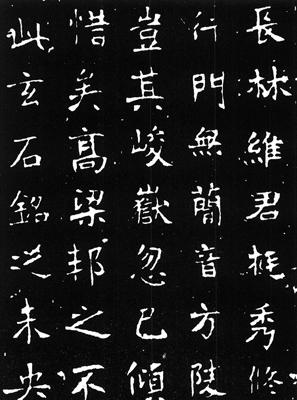 長林維君挺秀修
行門無簡音方陵
豈其峻嶽忽已傾
惜矣高梁邦之不
此玄石銘未央